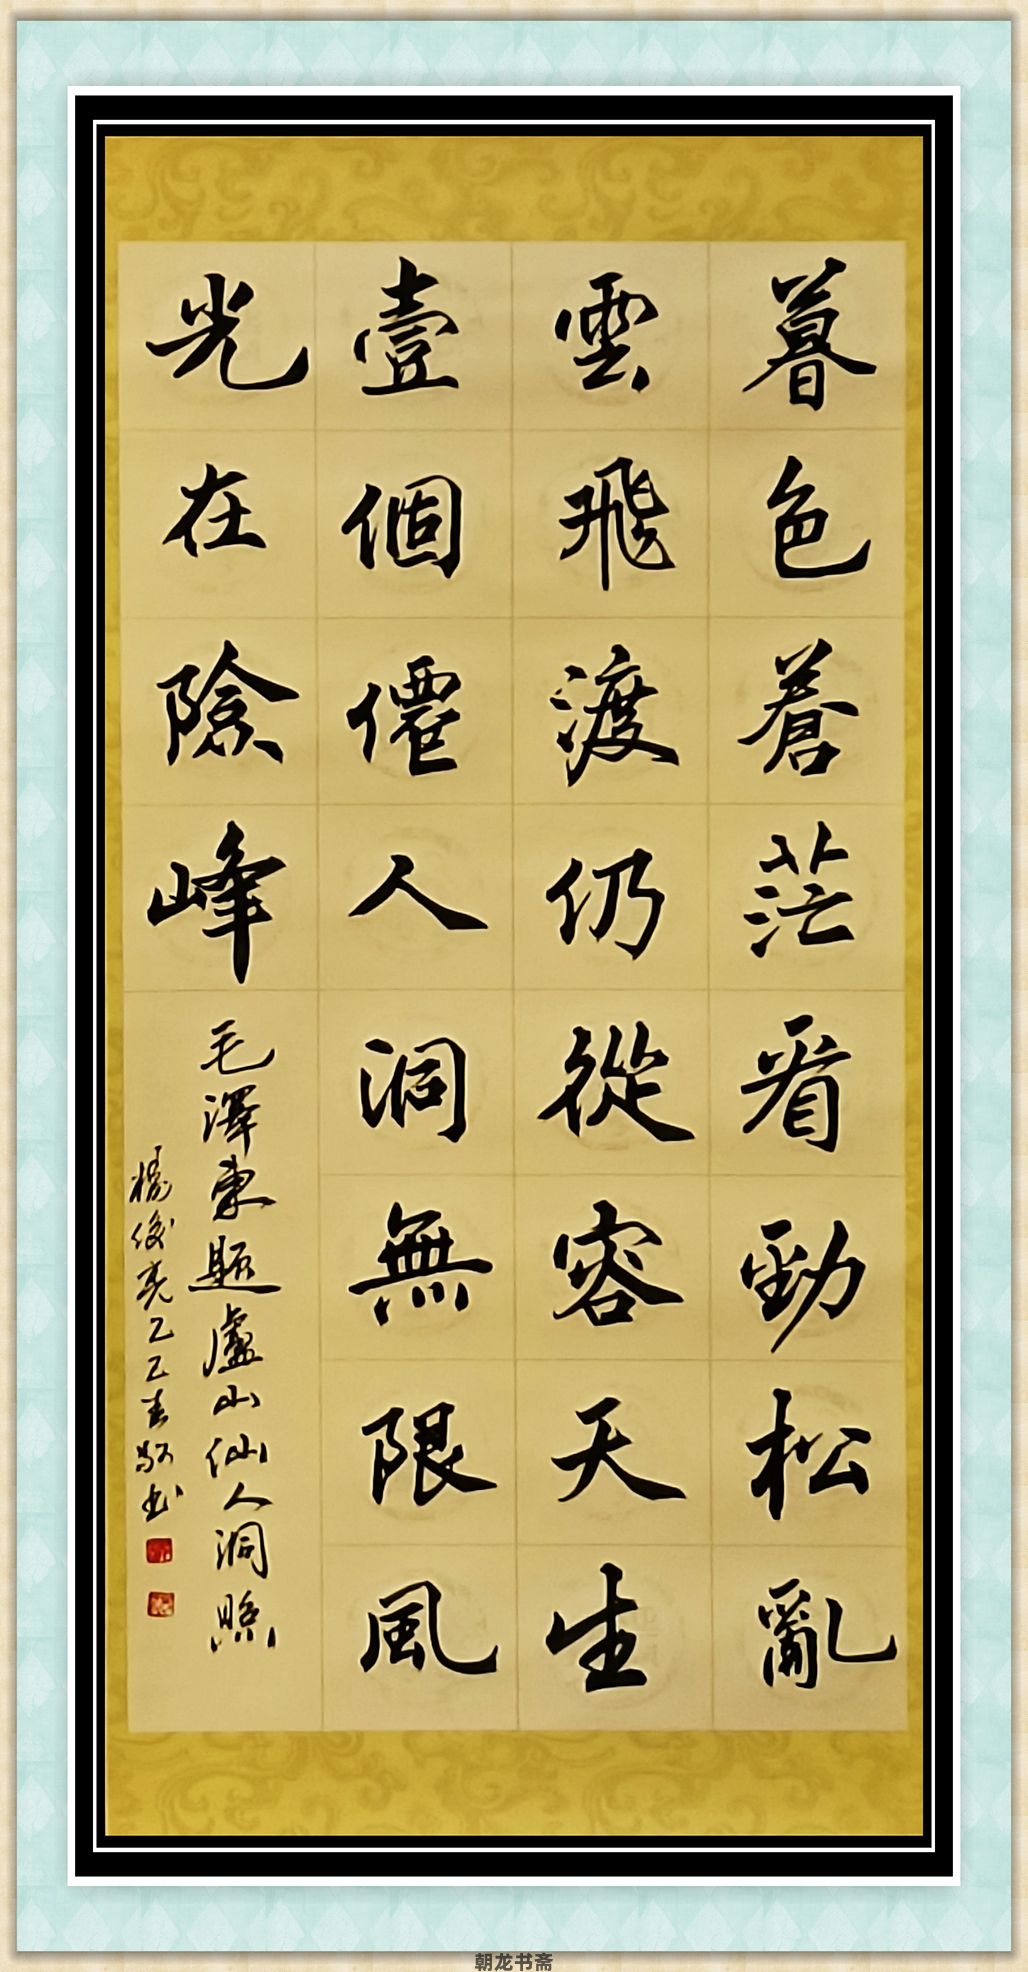 暮色蒼茫看勁松亂
雲飛渡仍從容天生
壹個僊人洞無限風
光在險峰
毛澤東題廬山仙人洞照
楊俊亮乙巳春敬书
朝龙书斋